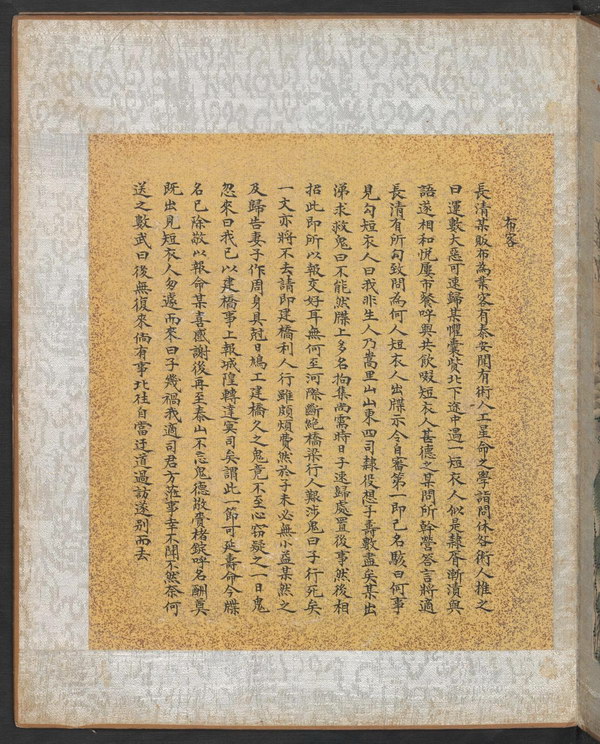 布客
長清某販布為業客有泰安聞有術人工星命之學詣問休咎術人推之
曰運數大惡可速歸某懼囊貲北下途中遇一短衣人似是隸胥漸漬與
語遂相和悅屢市餐呼與共飲啜短衣人甚德之某問所幹營答言將適
長清有所勾致問為何人短衣人出牒示令自審第一即己名駭曰何事
見勾短衣人曰我非生人乃蒿里山山東四司隸役想子壽數盡矣某出
涕求救鬼曰不能然牒上多名拘集尚需時日子速歸處置後事然後相
招此即所以報交好耳無何至河際斷絕橋梁行人艱涉鬼曰子行死矣
一文亦將不去請即建橋利人行雖頗煩費然於子未必無小益某然之
及歸告妻子作周身具尅日鳩工建橋久之鬼竟不至心竊疑之一日鬼
忽來曰我已以建橋事上報城隍轉達冥司矣謂此一節可延壽命今牒
名已除敬以報命某喜感謝後再至泰山不忘鬼德散賚楮錠呼名酬奠
既出見短衣人匆遽而來曰子幾禍我適司君方蒞事幸不聞不然奈何
送之數武曰後無復來倘有事北往自當迂道過訪遂別而去